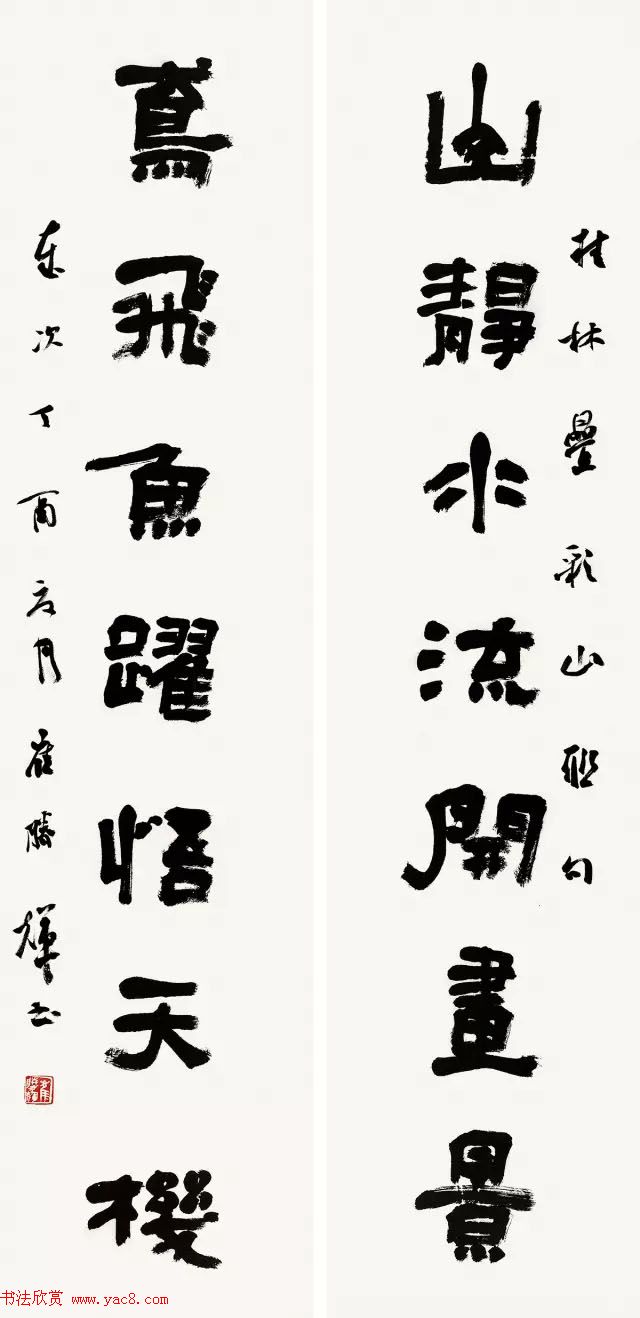 山靜水流開畫景
桂林疊彩山聯句
鳶飛魚躍悟天機
歲次丁酉六月崔勝輝書
书法欣赏 www.yac8.com